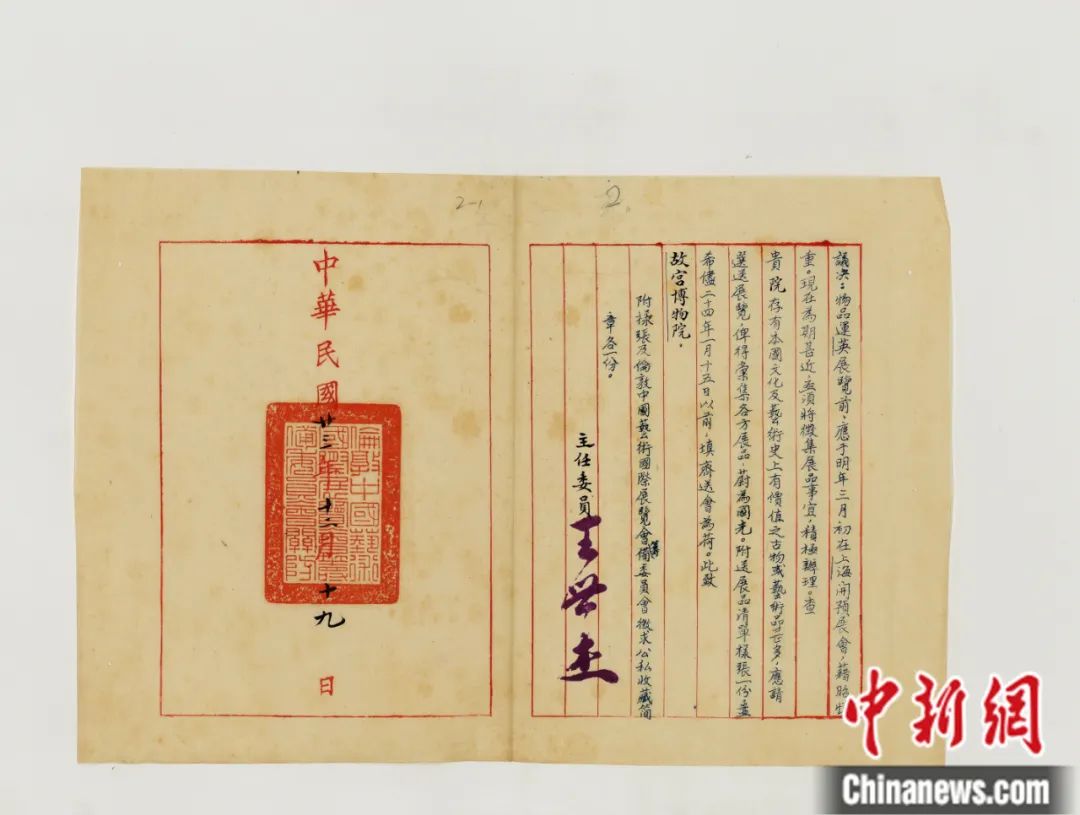 2-1
2
議決：物品運英展覽前，應于明年三月初在上海開預展會，藉昭
重。現在為期甚近，亟須將徵集展品事宜，積極辦理。查
貴院存有本國文化及藝術史上有價值之古物或藝術品甚多，應請
選送展覽，俾得彙集各方展品，蔚為國光。附送展品清單樣張一份，
希儘二十四年一月十五日以前，填齊送會為荷。此致
故宮博物院。
附樣張及倫敦中國藝術國際展覽會籌備委員會徵求公私收藏簡
章各一份。
主任委員王世杰
中華民國廿三年十二月十九日
倫敦中國藝術國際展覽會籌備委員會關防
中新網
Chinanews.com